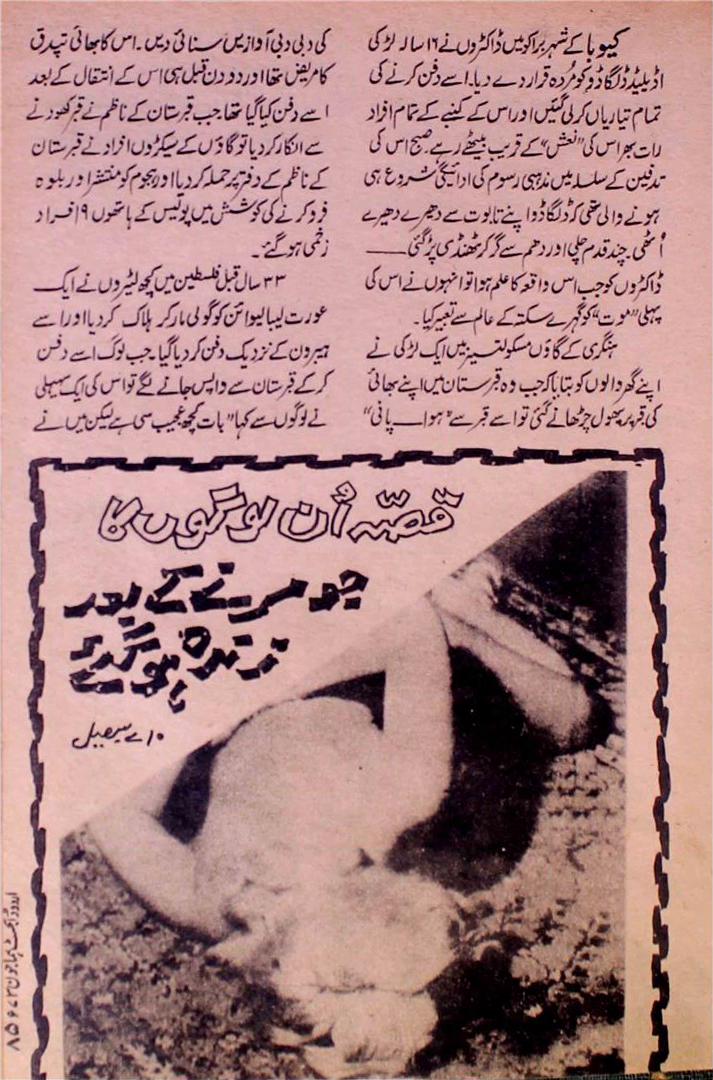 کیوبا کے شہر براکو میں ڈاکٹروں نے ۱۶ سالہ لڑکی
اڈیلیڈ ڈلگاڈو کو مُردہ قرار دے دیا۔ اسے دفن کرنے کی
تمام تیاریاں کرلی گئیں اور اس کے کنبے کے تمام افراد
رات بھر اس کی "نعش" کے قریب بیٹھے رہے۔ صبح اس کی
تدفین کے سلسلہ میں مذہبی رسوم کی ادائیگی شروع ہی
ہونے والی تھی کہ ڈلگاڈو اپنے تابوت سے دھیرے دھیرے
اُٹھی۔ چند قدم چلی اور دھم سے گر کر ٹھنڈی پڑ گئی ــــــ
ڈاکٹروں کو جب اس واقعہ کا علم ہوا تو انہوں نے اس کی
پہلی "موت" کو گہرے سکتہ کے عالم سے تعبیر کیا۔
ہنگری کے گاؤں مسکولتسیز میں ایک لڑکی نے
اپنے گھر والوں کو بتایا کہ جب وہ قبرستان میں اپنے بھائی
کی قبر پر پھول چڑھانے گئی تو اسے قبر سے "ہوا ـــ پانی"
کی دبی دبی آوازیں سنائی دیں۔ اس کا بھائی تپدق
کا مریض تھا اور دو دن قبل ہی اس کے انتقال کے بعد
اسے دفن کیا گیا تھا۔ جب قبرستان کے ناظم نے قبر کھودنے
سے انکار کر دیا تو گاؤں کے سیکڑوں افراد نے قبرستان
کے ناظم کے دفتر پر حملہ کر دیا اور ہجوم کو منتشر اور بلوہ
فرو کرنے کی کوشش میں پولیس کے ہاتھوں ۱۹ افراد
زخمی ہو گئے۔
۳۳ سال قبل فلسطین میں کچھ لٹیروں نے ایک
عورت لیبا لیوائن کو گولی مار کر ہلاک کر دیا اور اسے
ہیبرون کے نزدیک دفن کر دیا گیا۔ جب لوگ اسے دفن
کر کے قبرستان سے واپس جانے لگے تو اس کی ایک سہیلی
نے لوگوں سے کہا "بات کچھ عجیب سی ہے لیکن میں نے
قصّہ اُن لوگوں کا
جو مرنے کے بعد
زندہ ہو گئے!
اے سہیل
اردو ڈائجسٹ ہما جون ۶۷۳ ۸۵